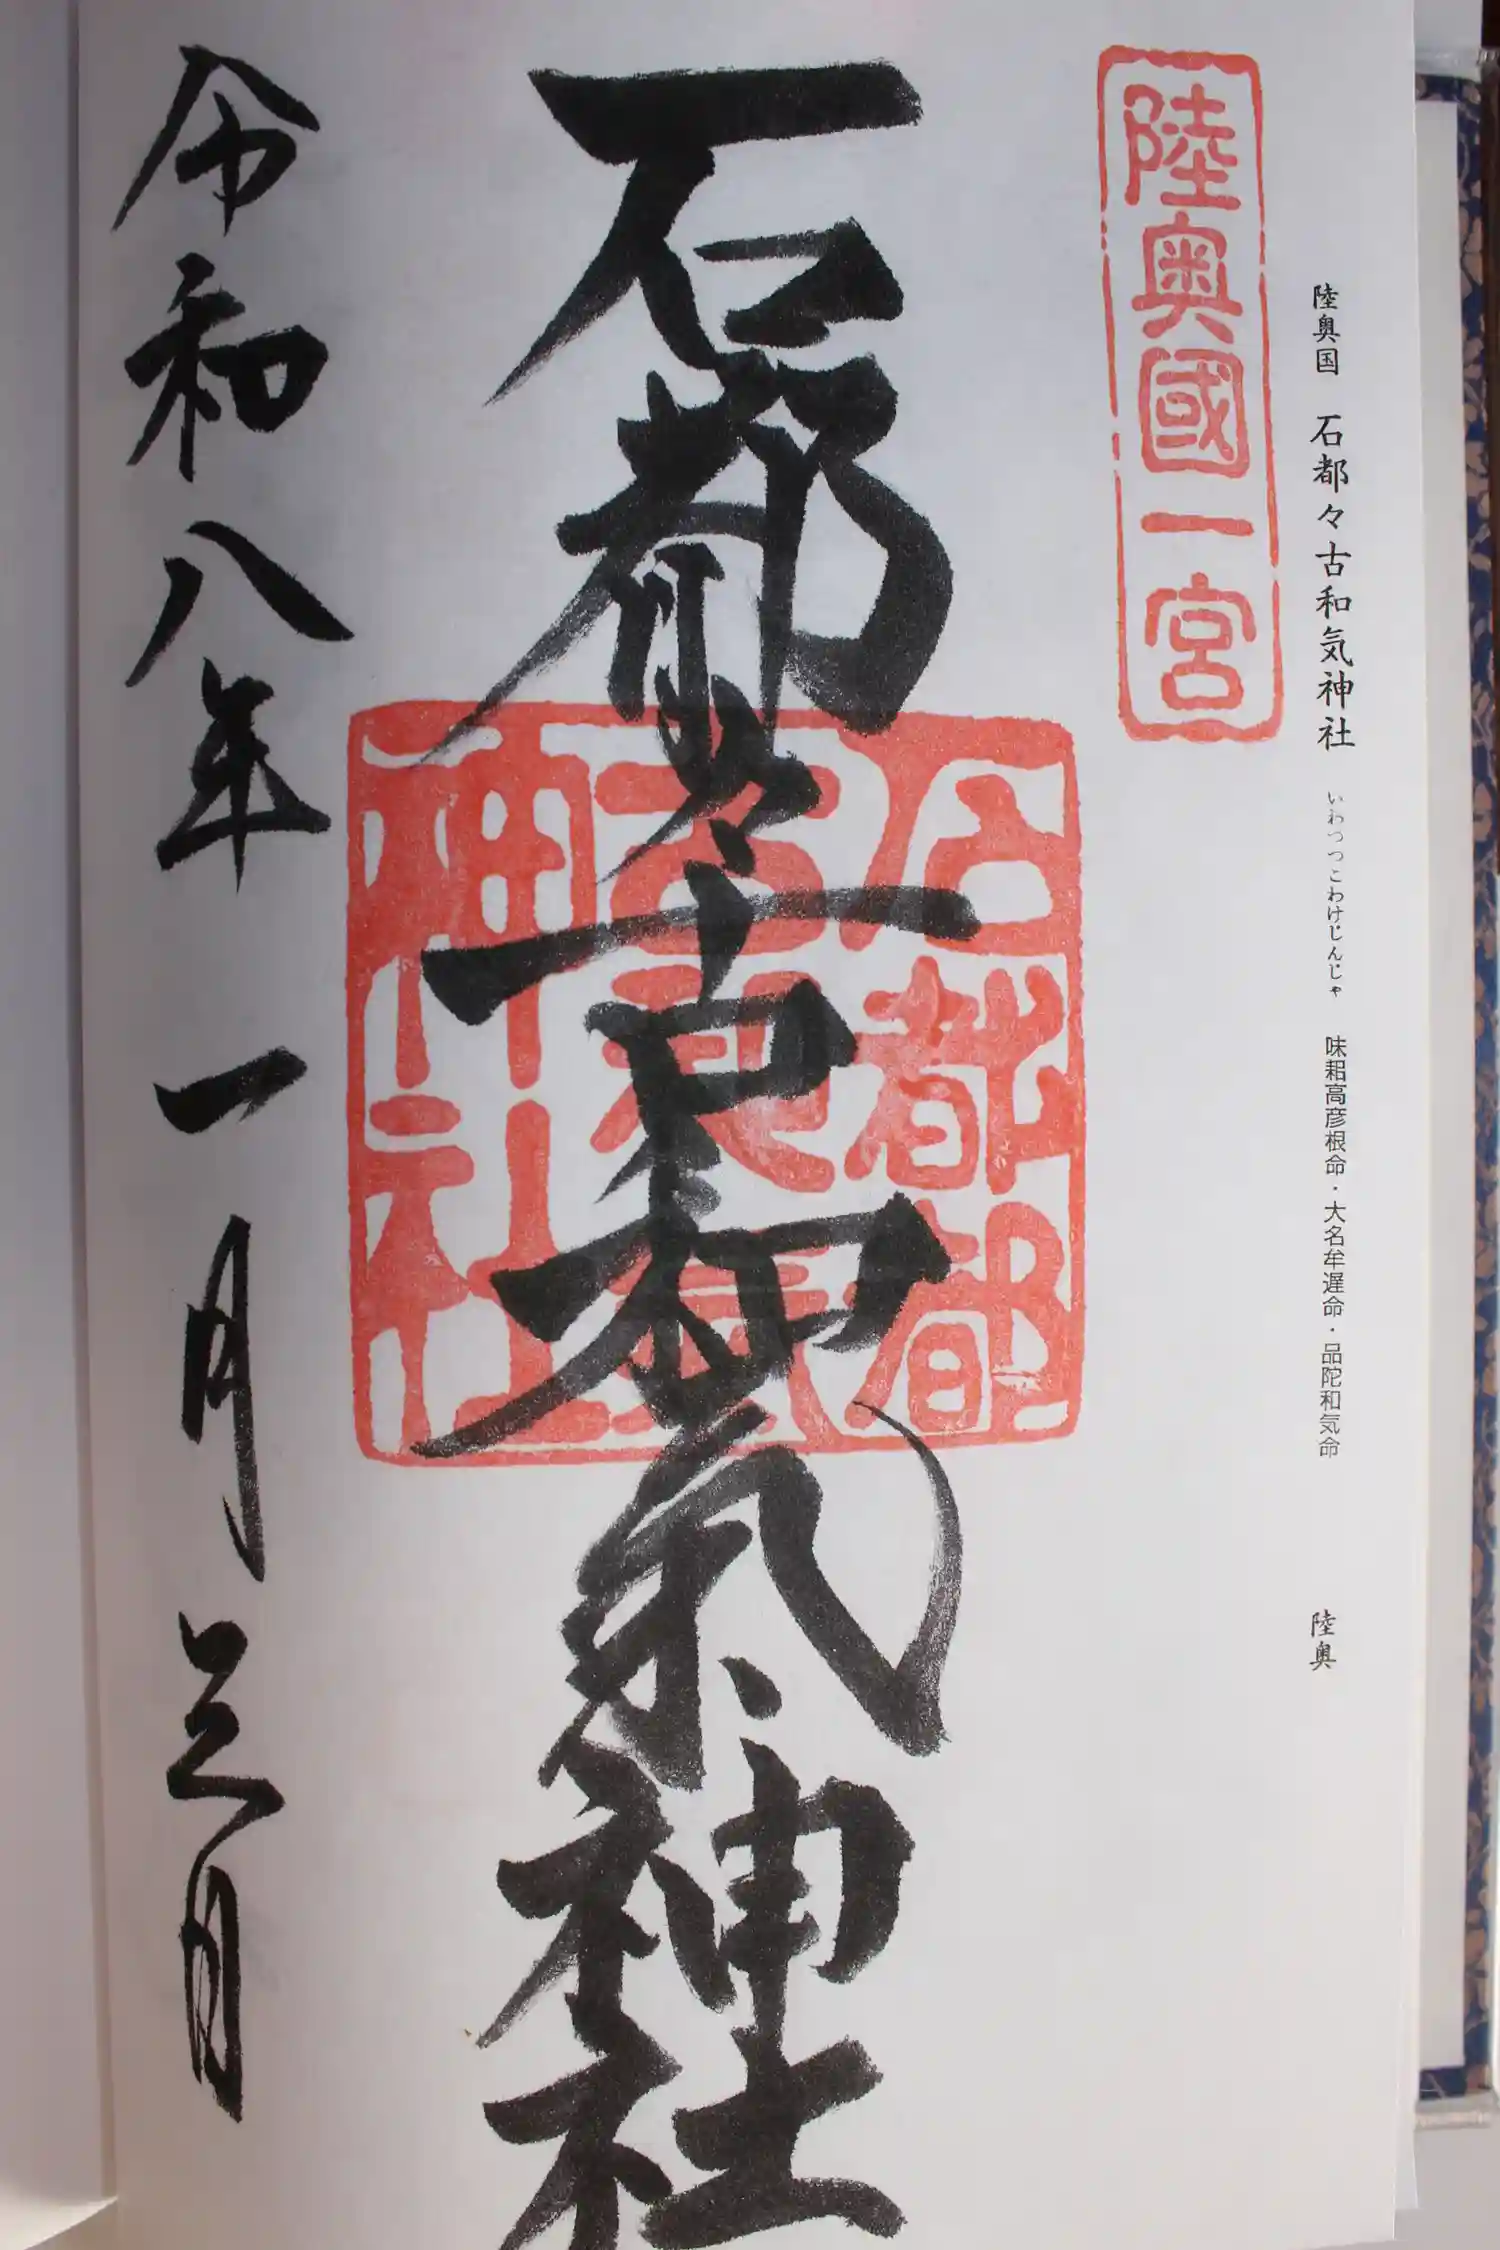 陸奥国 石都々古和気神社 いわつつこわけじんじゃ 味耜高彦根命・大名牟遅命・品陀和気命 陸奥
陸奥國一宮
石都々古和氣神社
石都都
神社
令和八年一月三日